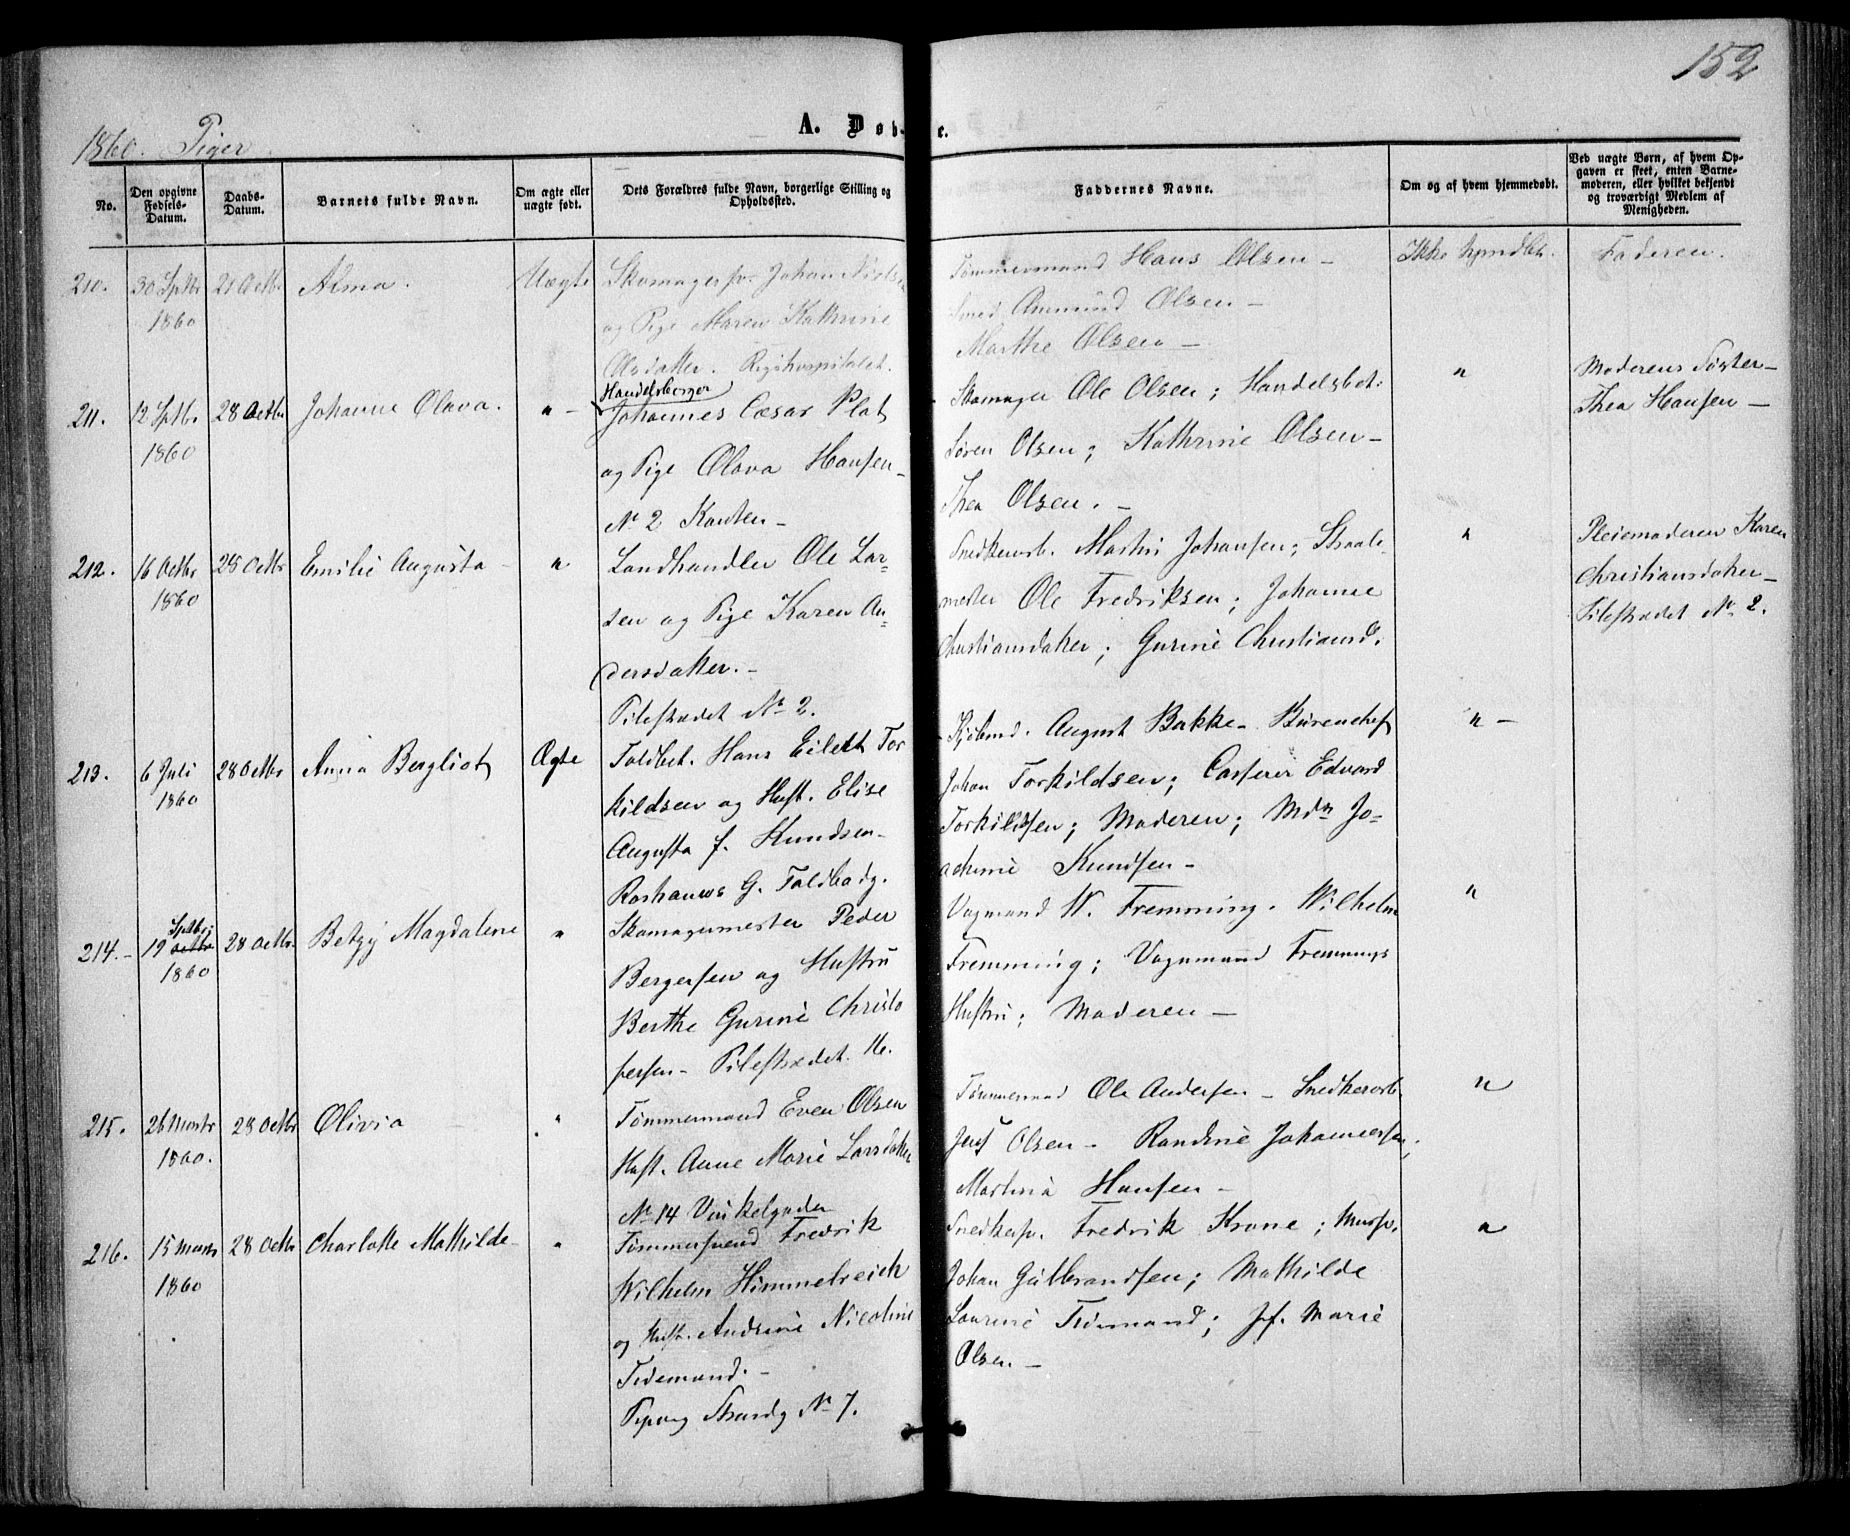 152
1860. Piger.
A. Døb-
te.
No.
Den opgivne Fødsels-Datum.
Daabs-Datum.
Barnets fulde Navn.
Om ægte eller uægte født.
Dets Forældres fulde Navn, borgerlige Stilling og Opholdssted.
Faddernes Navne.
Om og af hvem hjemmedøbt.
Ved uægte Børn, af hvem Opgaven er skeet, enten Barnemoderen, eller hvilket bekjendt og troværdigt Medlem af Menigheden.
210. 30 Sptbr 1860
21 Octbr
Alma.
Uægte
Skomagersv. Johan Nielsen
og Pige Maren Kathrine
Olsdatter. Rigshospitalet.
Tømmermand Hans Olsen -
Smed Ammund Olsen -
Marthe Olsen -
Ikke hjmdbt.
Faderen.
211. 12 Sptbr 1860
28 Octbr
Johanne Olava.
" -
Handelsborger
Johannes Cæsar Plat
og Pige Olava Hansen -
No 2 Kanten -
Skomager Ole Olsen; Handelsbet.
Søren Olsen; Kathrine Olsen -
Thea Olsen. -
"
Moderens Søster -
Thea Hansen -
212. 16 Octbr 1860
28 Octbr
Emilie Augusta -
"
Landhandler Ole Lar-
sen og Pige Karen An-
dersdatter. -
Pilestrædet No 2.
Snedkerarb. Martin Johansen; Straale-
mester Ole Fredriksen; Johanne
Christiansdatter; Gurine Christiansd.
"
Pleiemoderen Karen
Christiansdatter -
Pilestrædet No 2.
213. 6 Juli 1860
28 Octbr
Anna Bergliot
Ægte
Toldbet. Hans Eilert Tor-
kildsen og Hust. Elise
Augusta f. Knudsen -
G. Toldbodg.
Kjøbmd. August Bakke - Bureauchef
Johan Torkildsen; Casserer Edvard
Torkildsen; Moderen; Mdm Jo-
achime Knudsen -
" -
214. - 19 Sptbr 1860
28 Octbr.
Betzy Magdalene
"
Skomagermester Peder
Bergersen og Hustru
Berthe Gurine Christo
fersen - Pilestrædet 16.
Vognmand W. Fremming. Wilhelm
Fremming; Vognmand Fremmings
Hustru; Moderen -
"
215. 26 Marts 1860.
28 Octbr
Olivia
"
Tømmermand Even Olsen
Hust. Anne Marie Larsdatter
No 14 Vinkelgaden
Tømmermd Ole Andersen - Snedkerarb.
Olsen - Randine Johannesen;
Martinia Hansen -
"
216. 15 Marts 1860
28 Octbr
Charlotte Mathilde -
"
Tømmersvend Fredrik
Wilhelm Himmelreich
og Hust. Andrine Nicoline
Tidemand. -
Pipervig Strandg No 7.
Snedkersv. Fredrik Krone; Mursv.
Johan Gulbrandsen; Mathilde
Laurine Tidemand; Jf. Marie
Olsen -
"